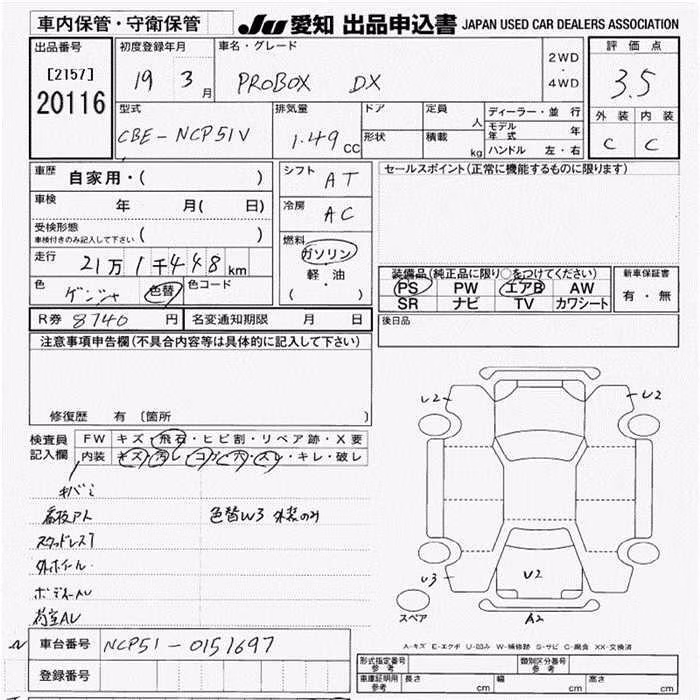 車内保管・守衛保管
JU 愛知 出品申込書 JAPAN USED CAR DEALERS ASSOCIATION
出品番号
[2157]
20116
初度登録年月
19 3月
車名・グレード
PROBOX DX
2WD
・
4WD
評価点
3.5
外装 内装
C C
型式
CBE-NCP51V
排気量
1.49cc
ドア
形状
定員 人
積載 kg
ディーラー・並行
モデル年式 年
ハンドル 左・右
車歴 自家用・( )
車検 年 月( 日)
受検形態
車検付きのみ記入して下さい ( )
走行 21万1千448km
色
色替
色コード
シフト AT
冷房 AC
燃料
ガソリン
軽・油
( ・ )
セールスポイント(正常に機能するものに限ります)
装備品(純正品に限り○をつけてください)
PS PW エアB AW
SR ナビ TV カワシート
新車保証書
有・無
R券 8740円
名変通知期限 月 日
後日品
注意事項申告欄(不具合内容等は具体的に記入して下さい)
修復歴 有〔箇所 〕
検査員記入欄
FW キズ・飛石・ヒビ割・リペア跡・X要
内装 キズ・汚レ・コゲ・穴・スレ・キレ・破レ
色替W3 外装のみ
スタッドレスT
外ホイール
U2
U2
U3
U2
A2
スペア
A-キズ E-エクボ U-凹み W-補修跡 S-サビ C-腐食 XX-交換済
車台番号 NCP51-0151697
登録番号
形式指定番号 参考
類別区分番号 参考
車庫証明用 参考 長さ cm 幅 cm 高さ cm